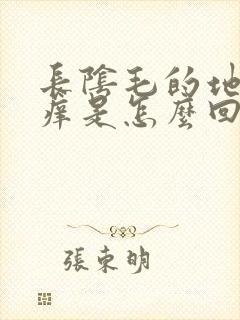 長陰毛的地
痒是怎麼回
張東明